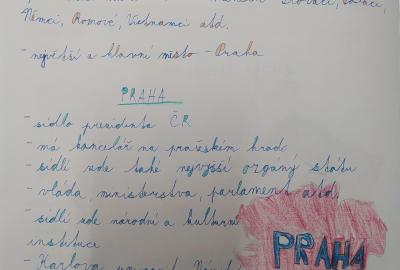 Němci, Romové, Vietnamci atd.
- největší a hlavní město - Praha
PRAHA
- sídlo prezidenta ČR
- má kancelář na pražském hradě
- sídlí zde také nejvyšší orgány státu
- vláda, ministerstva, parlament atd.
- sídlí zde národní a kulturní
instituce
- Karlova
PRAHA